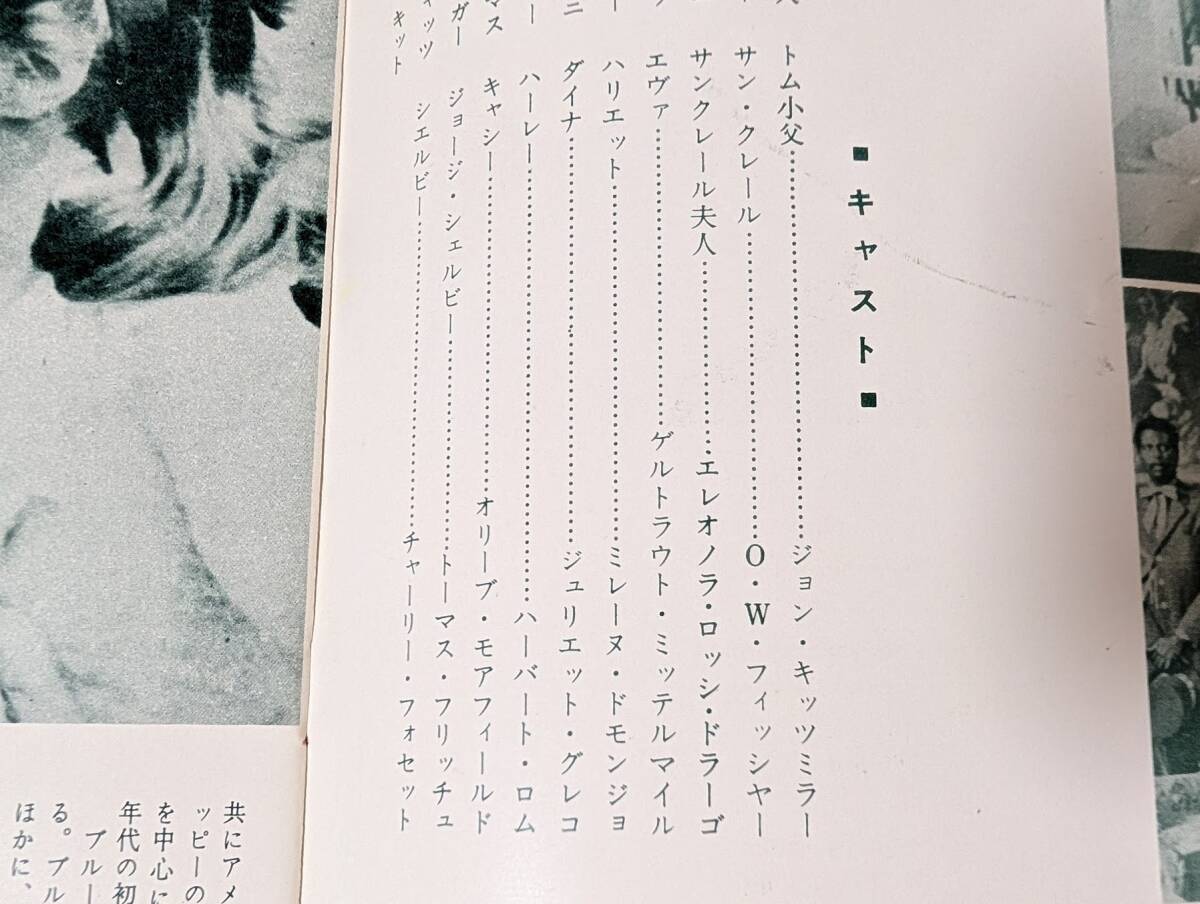 ■キャスト■
トム小父……ジョン・キッツミラー
サン・クレール……O・W・フィッシャー
サンクレール夫人……エレオノラ・ロッシ・ドラーゴ
エヴァ……ゲルトラウト・ミッテルマイル
ハリエット……ミレーヌ・ドモンジョ
ダイナ……ジュリエット・グレコ
ハーレー……ハーバート・ロム
キャシー……オリーブ・モアフィールド
ジョージ・シェルビー……トーマス・フリッチュ
シエルビー……チャーリー・フォセット
ニ
ー
マス
ガー
ャッツ
キット
共にアメ
ッピーの
を中心に
年代の初
ブルー
る。ブル
ほかに、